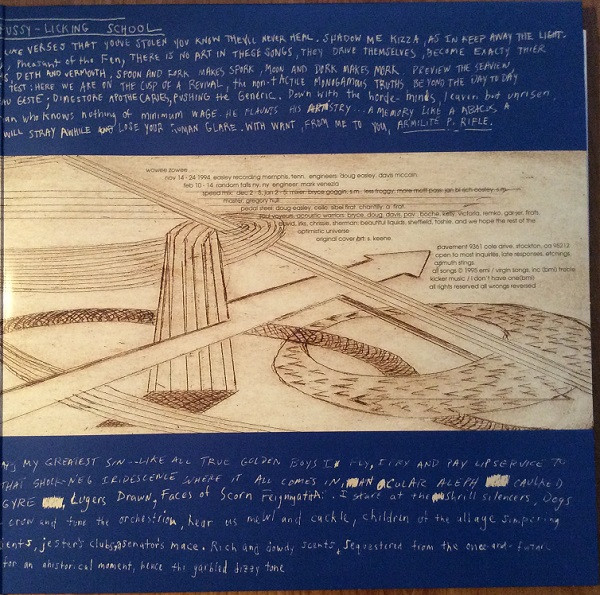 PUSSY-LICKING SCHOOL
VERSES THAT YOU'VE STOLEN YOU KNOW THEY'LL NEVER HEAL. SHADOW ME KIZZA, AS IN KEEP AWAY THE LIGHT.
Pheasant of the Fen, THERE IS NO ART IN THESE SONGS, THEY DRIVE THEMSELVES, BECOME EXACTLY THIER
DETH AND VERMOUTH, SPOON AND FORK MAKES SPORK, MOON AND DORK MAKES MORK. PREVIEW THE SEAVIEW,
TEST: HERE WE ARE ON THE CUSP OF A REVIVAL, the non-TACTILE MONOGAMOUS TRUTHS BEYOND THE DAY TO DAY
GESTE. DIMESTORE APOTHECARIES, PUSHING the Generic. Down with the horde-minds, leaven but unrisen,
an who knows nothing of minimum WAGE. HE FLAUNTS HIS ARTISTRY... A MEMORY LIKE A ABACUS, A
WILL STRAY AWHILE AND LOSE YOUR ROMAN GLARE. WITH WANT, FROM ME TO YOU, ARMILITE P. RIFLE.
wowee zowee
nov 14 - 24 1994, easley recording memphis, tenn. engineers: doug easley, davis mccain.
feb 10 - 14 random falls ny, ny engineer: mark venezia
speed mix: dec 2 - 5, jan 2 - 5. mixer: bryce goggin, s.m. less froggy, more moff
master: gregory hull
pedal steel: doug easley, cello: sibel firat
soul voyeurs, acoustic warriors: bryce, doug, davis, pav, boche, kelly, victoria, remko, garser, firats,
david, life, chrissie, sherman, beautiful liquids, sheffield, toshie, and we hope the rest of the
optimistic universe
original cover art: s. keene
pavement 9361 cole drive, stockton, ca 95212
open to most inquiries, late responses, etchings,
azimuth stings.
all songs © 1995 emi / virgin songs, inc (bmi) treble
kicker music / i don't have one(bmi)
all rights reserved all wrongs reversed
MY GREATEST SIN -- LIKE ALL TRUE GOLDEN BOYS I FLY, I TRY AND PAY LIP SERVICE TO
THAT SHOCK-NEG IRIDESCENCE WHERE IT ALL COMES IN, AN OCULAR ALEPH CAULKED
GYRE, Lugers Drawn, Faces of Scorn. I start at the shrill silencers, Dogs
crow and tune the orchestrion, hear us mewl and cackle, children of the village simpering
jester's clubs, senator's mace. Rich and dowdy scents, sequestered from the once-and-future
for an ahistorical moment, hence the garbled dizzy tone